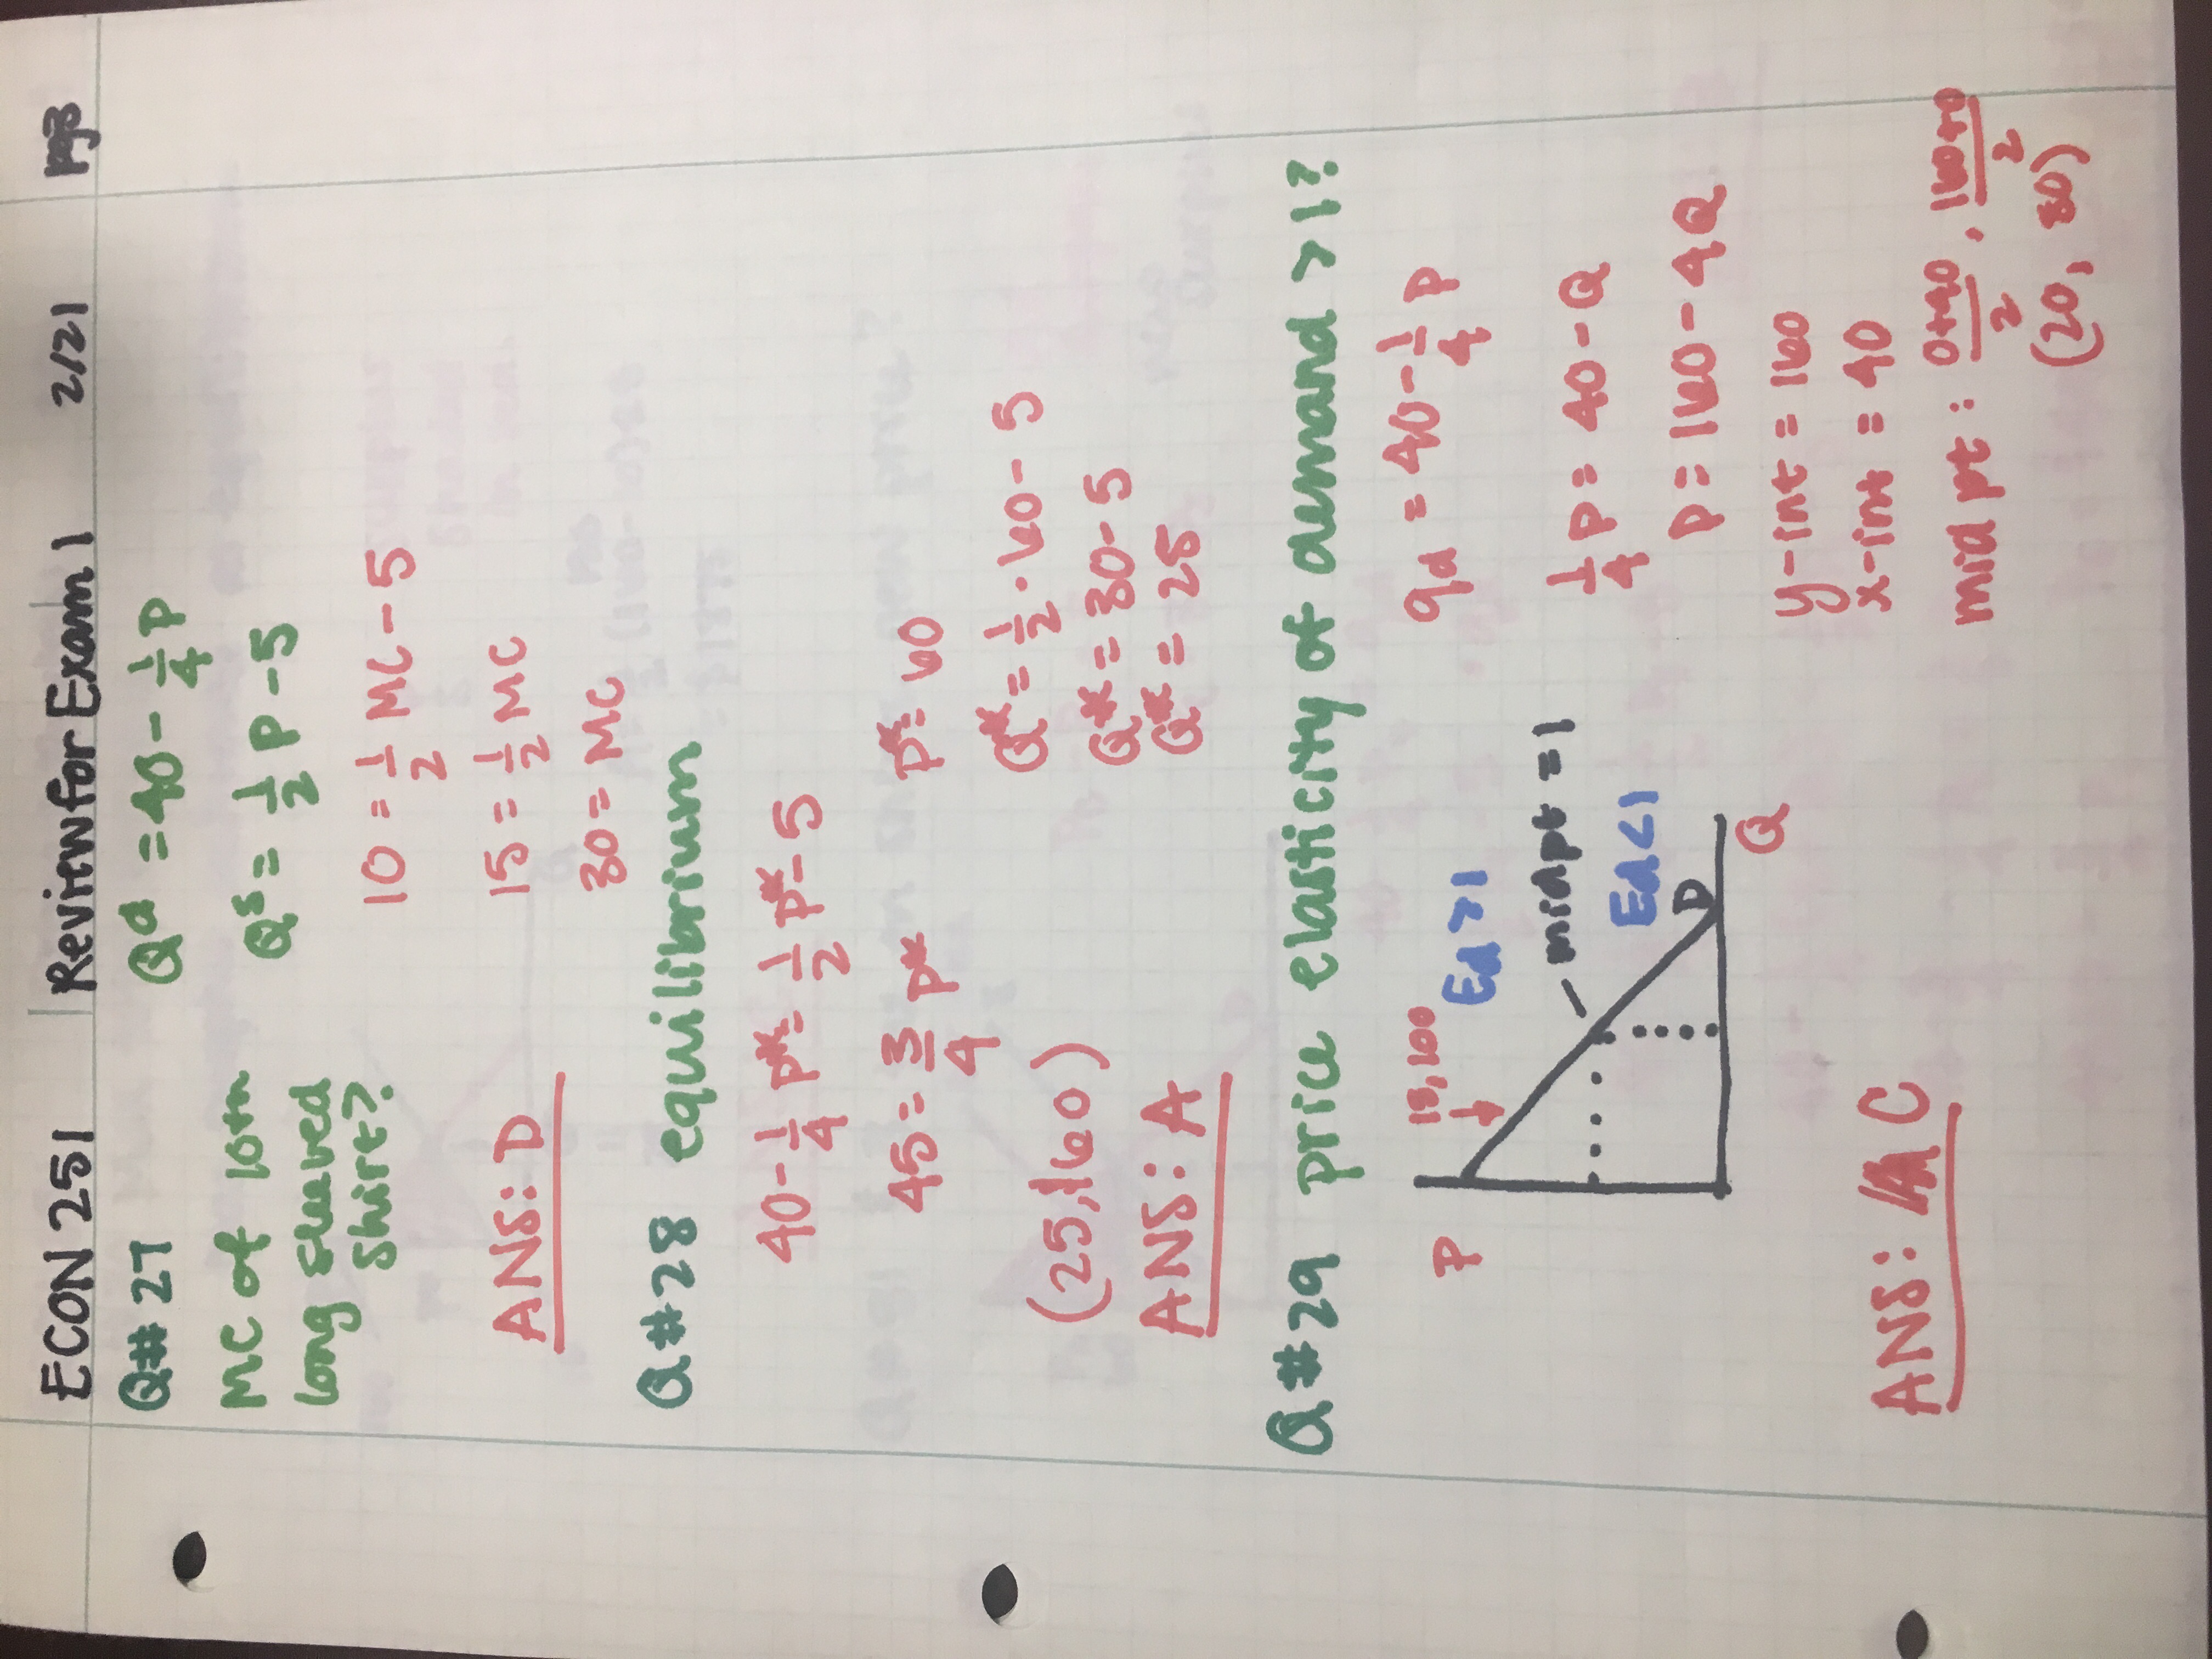 ECON 251 Review for Exam 1 2/21 pg3
Q# 27 Qd = 40 - 1/4 P
MC of 10th
long sleeved
shirt?
Qs = 1/2 P - 5
10 = 1/2 MC - 5
15 = 1/2 MC
30 = MC
ANS: D
Q#28 equilibrium
40 - 1/4 P* = 1/2 P* - 5
45 = 3/4 P*
P* = 60
Q* = 1/2 · 60 - 5
Q* = 30 - 5
Q* = 25
(25, $60)
ANS: A
Q#29 price elasticity of demand > 1?
P
15, 100
Ed > 1
midpt = 1
Ed < 1
D
Q
qd = 40 - 1/4 P
1/4 P = 40 - Q
P = 160 - 4Q
y-int = 160
x-int = 40
mid pt: 0+40/2, 160+0/2
(20, 80)
ANS: C